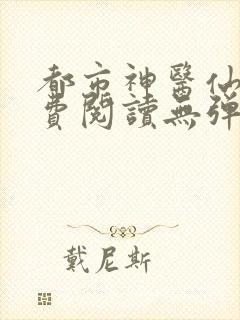 都市神醫仙
費閱讀無彈
戴尼斯